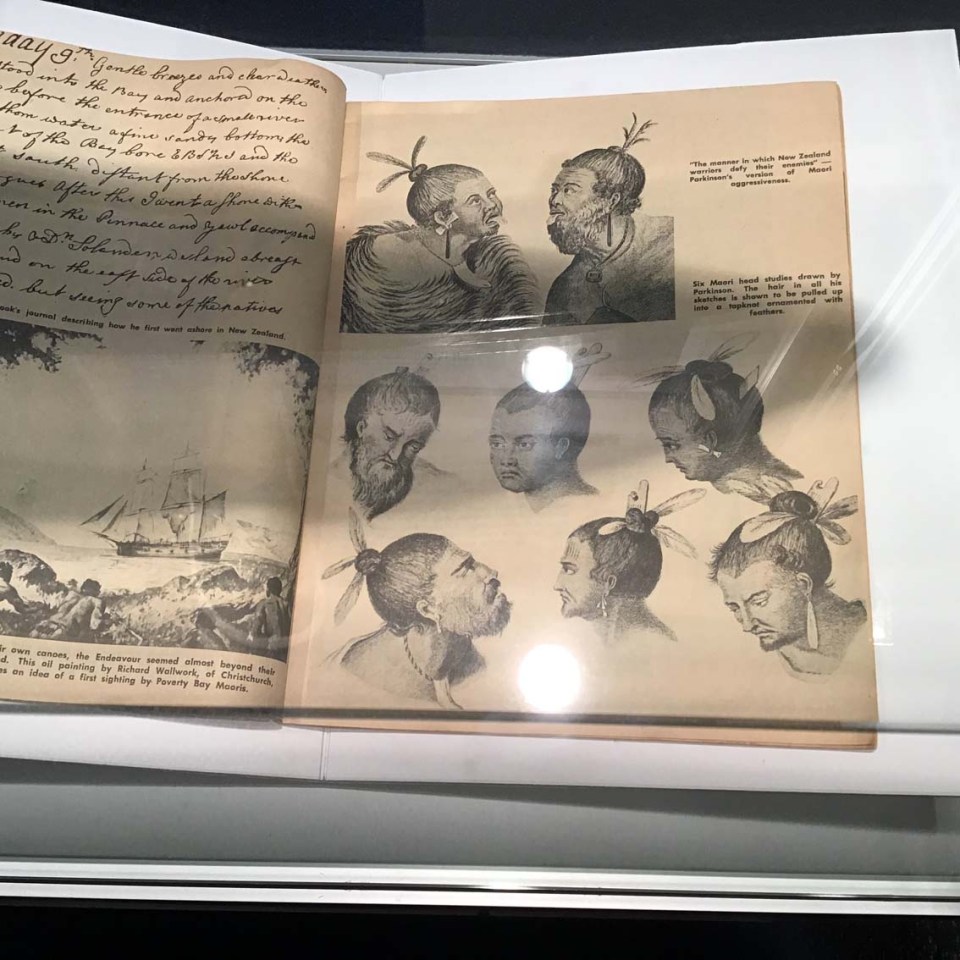 day 9th Gentle breezes and clear weather
stood into the Bay and anchored on the
before the entrance of a small river
thom water a fine sandy bottom the
of the Bay bore EBSt and the
south distant from the shore
After this I went a shore with
men in the Pinnace and yawl accompanied
by &Dn Solander wee land abreast
and on the east side of the river
but seeing some of the natives
ook's journal describing how he first went ashore in New Zealand.
ir own canoes, the Endeavour seemed almost beyond their
d. This oil painting by Richard Wallwork, of Christchurch,
es an idea of a first sighting by Poverty Bay Maoris.
"The manner in which New Zealand
warriors defy their enemies" —
Parkinson's version of Maori
aggressiveness.
Six Maori head studies drawn by
Parkinson. The hair in all his
sketches is shown to be pulled up
into a topknot ornamented with
feathers.